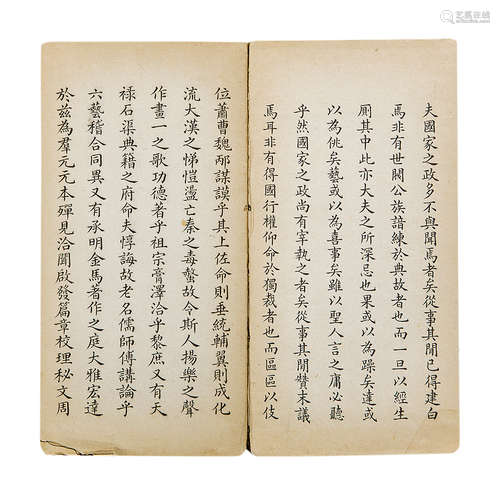 夫國家之政多不與聞焉者矣從事其閒已得建白
焉非有世閥公族諳練於典故者也而一旦以經生
厠其中此亦大夫之所深忌也果或以為躁矣達或
以為佻矣藝或以為喜事矣雖以聖人言之庸必聽
乎然國家之政尚有宰執之者矣從事其閒贊末議
焉耳非有得國行權仰命於獨裁者也而區區以伎
位蕭曹魏邴謀謨乎其上佐命則垂統輔翼則成化
流大漢之悌愷盪亡秦之毒螫故令斯人揚樂之聲
作畫一之歌功德著乎祖宗膏澤洽乎黎庶又有天
祿石渠典籍之府命夫惇誨故老名儒師傅講論乎
六藝稽合同異又有承明金馬著作之庭大雅宏達
於茲為羣元元本殫見洽聞啟發篇章校理秘文周